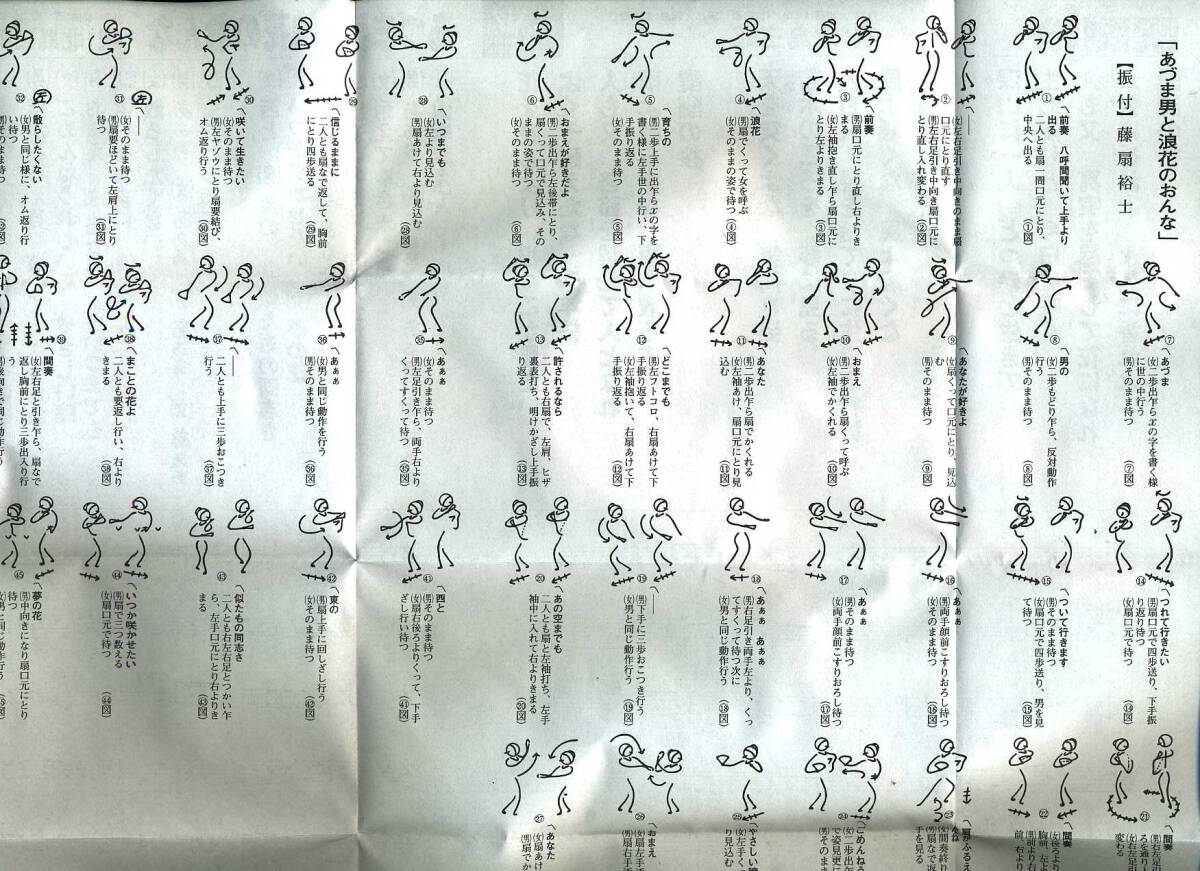 「あづま男と浪花のおんな」
【振付】藤扇裕士
①
〽前奏 八呼間聞いて上手より
出る
二人とも扇一間口元にとり、
中央へ出る (①図)
②
〽――
(女)左右足引き中向きのまま扇
口元にとり直す
(男)左右足引き中向き扇口元に
とり直し入れ変わる (②図)
③
〽前奏
(男)扇口元にとり直し右よりき
まる
(女)左袖抱き直し乍ら扇口元に
とり左よりきまる (③図)
④
〽浪花
(男)扇でくって女を呼ぶ
(女)そのままの姿で待つ (④図)
⑤
〽育ちの
(男)二歩上手に出乍らxの字を
書く様に左手世の中行い、下
手振り返る
(女)そのまま待つ (⑤図)
⑥
〽おまえが好きだよ
(男)二歩出乍ら左後帯にとり、
扇くって口元で見込み、その
ままの姿で待つ
(女)そのまま待つ (⑥図)
⑦
〽あづま
(女)二歩出乍らxの字を書く様
に世の中行う
(男)そのまま待つ (⑦図)
⑧
〽男の
(女)二歩もどり乍ら、反対動作
行う
(男)そのまま待つ (⑧図)
⑨
〽あなたが好きよ
(女)扇くって口元にとり、見込
む
(男)そのまま待つ (⑨図)
⑩
〽おまえ
(男)二歩出乍ら扇くって呼ぶ
(女)左袖でかくれる (⑩図)
⑪
〽あなた
(男)二歩出乍ら扇でかくれる
(女)左袖あけ、扇口元にとり見
込む (⑪図)
⑫
〽どこまでも
(男)左フトコロ、右扇あけて下
手振り返る
(女)左袖抱いて、右扇あけて下
手振り返る (⑫図)
⑬
〽許されるなら
二人とも右扇で、左肩、ヒザ
裏表打ち、明けかざし上手振
り返る (⑬図)
⑭
〽つれて行きたい
(男)扇口元で四歩送り、下手振
り返り待つ (⑭図)
⑮
〽ついて行きます
(男)そのまま待つ
(女)扇口元で四歩送り、男を見
て待つ (⑮図)
⑯
〽あぁぁ
(男)両手顔前こすりおろし待つ
(⑯図)
⑰
〽あぁぁ
(男)そのまま待つ
(女)両手顔前こすりおろし待つ
(⑰図)
⑱
〽あぁぁ あぁぁ
(男)右足引き両手左より、くっ
てすくって待つ次に
(女)男と同じ動作行う (⑱図)
⑲
〽――
(男)下手に三歩おこつき行う
(女)男と同じ動作行う (⑲図)
⑳
〽あの空までも
二人とも扇と左袖打ち、左手
袖中に入れて右よりきまる
(⑳図)
㉑
〽間奏
㉒
〽間奏
㉓
㉔
〽ごめんねう
㉕
〽やさしい
㉖
〽おまえ
㉗
〽あなた
㉘
〽いつまでも
(女)左より見込む
(男)扇あけて右より見込む
(㉘図)
㉙
〽信じるままに
二人とも扇なで返して、胸前
にとり四歩送る (㉙図)
㉚
〽咲いて生きたい
(女)そのまま待つ
(男)左ヤゾウにとり扇要結び、
オム返り行う (㉚図)
㉛
〽――
(女)そのまま待つ
(男)扇要ほどいて左肩上にとり
待つ (㉛図)
㉜
〽散らしたくない
(女)男と同じ様に、オム返り行
い待つ
(男)そのまま待つ (㉜図)
㉟
〽あぁぁ
(女)そのまま待つ
(男)左足引き乍ら、両手右より
くってすくって待つ (㉟図)
㊱
〽あぁぁ
(女)男と同じ動作を行う
(男)そのまま待つ (㊱図)
㊲
〽――
二人とも上手に三歩おこつき
行う (㊲図)
㊳
〽まことの花よ
二人とも要返し行い、右より
きまる (㊳図)
㊴
〽間奏
(女)左右足と引き乍ら、扇なで
返し胸前にとり三歩出入り行
う
㊶
〽西と
(男)そのまま待つ
(女)扇右後ろよりくって、下手
ざし行い待つ (㊶図)
㊷
〽東の
(男)扇上手に回しざし行う
(女)そのまま待つ (㊷図)
㊸
〽似たもの同志さ
二人とも右左右足とつかい乍
ら、左手口元にとり右よりき
まる (㊸図)
㊹
〽いつか咲かせたい
(男)扇で三つ数える
(女)扇口元で待つ (㊹図)
㊺
〽夢の花
(男)中向きになり扇口元にとり
待つ
(女)男と同じ動作行う (㊺図)